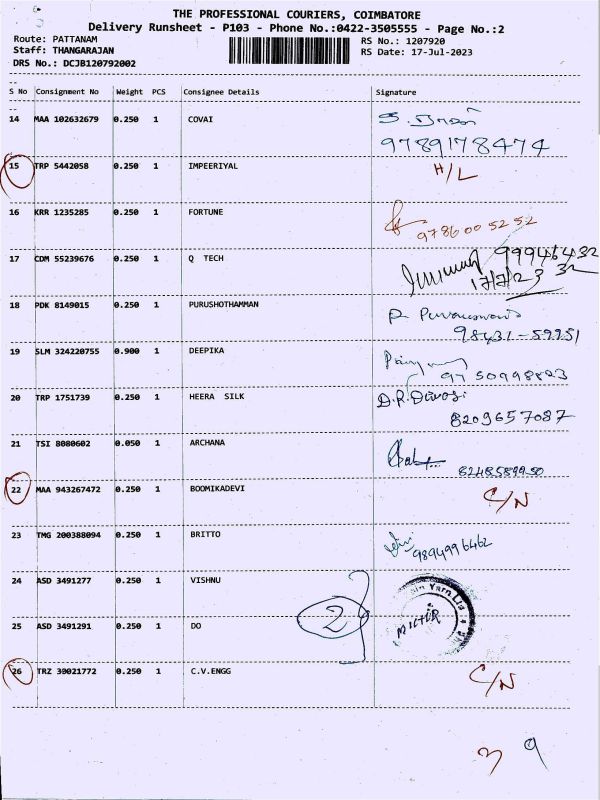 THE PROFESSIONAL COURIERS, COIMBATORE
Delivery Runsheet - P103 - Phone No.:0422-3505555 - Page No.:2
Route: PATTANAM
RS No.: 1207920
Staff: THANGARAJAN
RS Date: 17-Jul-2023
DRS No.: DCJB120792002
S No Consignment No Weight PCS Consignee Details Signature
14 MAA 102632679 0.250 1 COVAI
9789178474
15 TRP 5442058 0.250 1 IMPEERIYAL H/L
16 KRR 1235285 0.250 1 FORTUNE
9786005252
17 CDM 55239676 0.250 1 Q TECH 99946432
17/7/23 32
18 PDK 8149015 0.250 1 PURUSHOTHAMMAN
98431-59951
19 SLM 324220755 0.900 1 DEEPIKA
9750998823
20 TRP 1751739 0.250 1 HEERA SILK D.R.
8209657087
21 TSI 8080602 0.050 1 ARCHANA
22 MAA 943267472 0.250 1 BOOMIKADEVI C/N
23 TMG 200388094 0.250 1 BRITTO
9894996462
24 ASD 3491277 0.250 1 VISHNU
2
25 ASD 3491291 0.250 1 DO
26 TRZ 39021772 0.250 1 C.V.ENGG C/N
3 9